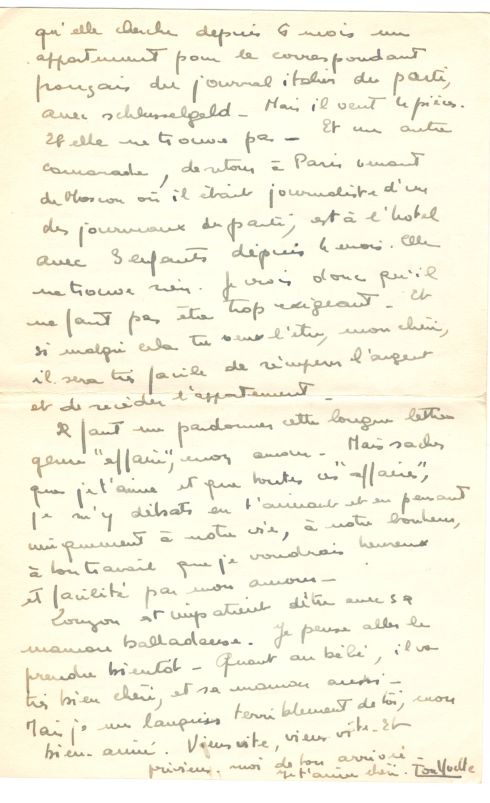 qu'elle cherche depuis 6 mois un
appartement pour le correspondant
français du journal italien du parti,
avec schlusselgeld - Mais il veut 4 pièces.
Et elle ne trouve pas - Et un autre
camarade, de retour à Paris venant
de Moscou où il était journaliste d'un
des journaux du parti, est à l'hotel
avec 3 enfants depuis 4 mois. Elle
ne trouve rien. Je crois donc qu'il
ne faut pas être trop exigeant - Et
si malgré cela tu veux l'être, mon chéri,
il sera très facile de récupérer l'argent
et de recéder l'appartement -
Il faut me pardonner cette longue lettre
genre "affaire", mon amour - Mais sache
que je t'aime et que toutes ces "affaires",
je m'y débats en t'aimant et en pensant
uniquement à notre vie, à notre bonheur,
à ton travail que je voudrais heureux
et facilité par mon amour -
est impatient d'être avec sa
maman balladeuse. Je pense aller le
prendre bientôt - Quant au bébé, il va
très bien chéri, et sa maman aussi -
Mais je me languis terriblement de toi, mon
bien-aimé. Viens vite, viens vite - Et
préviens-moi de ton arrivée -
Je t'aime chéri -